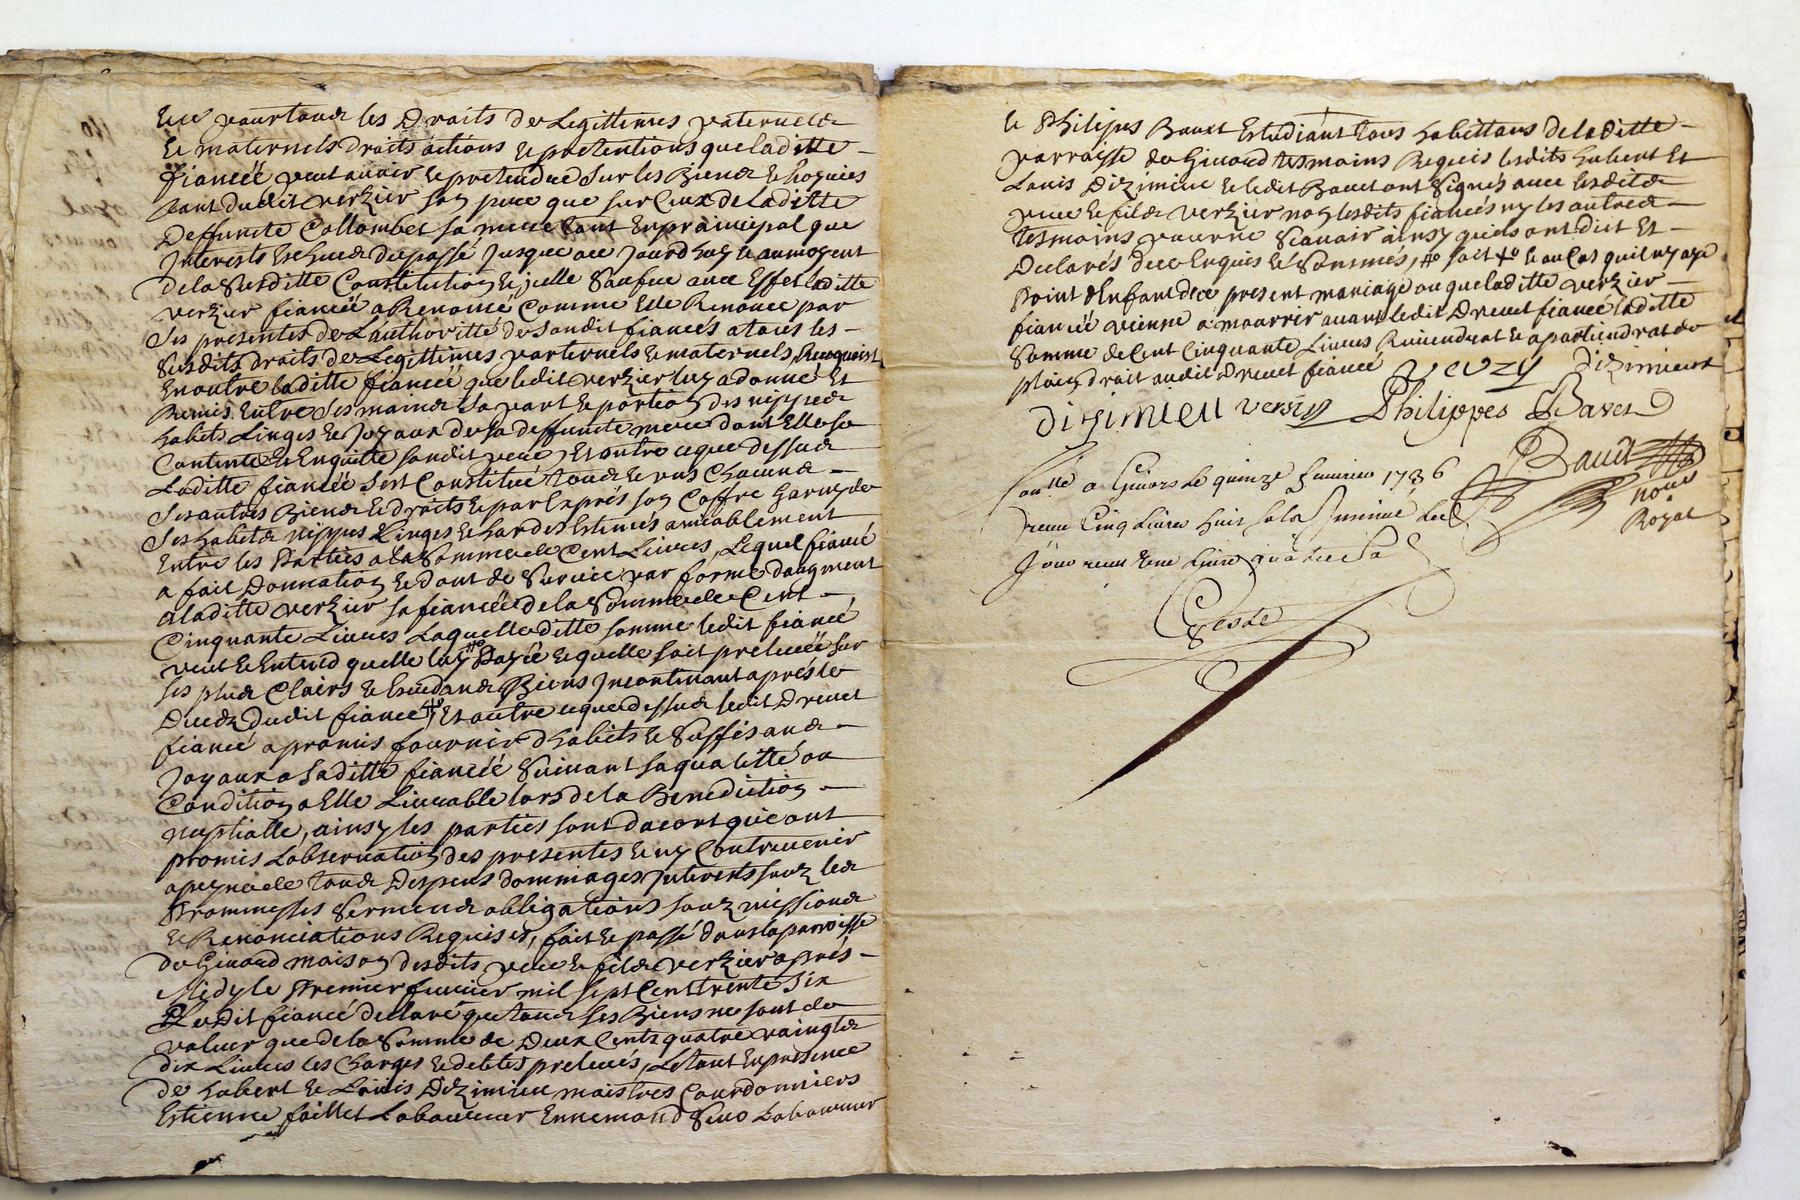 Et ce pour tous les Droits de Legittimes paternels
Et maternels droits actions et pretentions que laditte
fiancéé peut avoir et pretendre sur les Biens et hoyries
tant dudit verzier son pere que sur Ceux de Laditte
Deffuncte Collombet sa mere tant En principal que
Interests Escheus du passé Jusques a ce Jourdhuy et au moyent
de la Susditte Constitution et jcelle Saufve avec Effet laditte
verzier fiancéé a Renoncé Comme Elle Renonce par
Ses presentes de Lauthoritté de Sondit fiancés a tous les
Susdits droits de Legittimes parternels et maternels, Recognoist
En outre laditte fiancéé que ledit verzier luy a donné Et
Remis Entre Ses mains Sa part et portion des nippes
habits Linges et Joyaux de sa deffuncte mere dont Elle se
Contente et En quitte sondit pere, Et outre ce que dessus
Laditte fiancéé Sest Constitué tous et uns Chacuns
Ses autres Biens et droits et par Exprés son Coffre Garny de
Ses habits nippes Linges et hardes Estimés amiablement
Entre les Parties a la Somme de Cent Livres, Lequel fiancé
a fait Donnation et dont de Survie par forme daugment
a laditte verzier sa fiancéé de la Somme de Cent
Cinquante Livres Laquelle ditte somme ledit fiancé
veut et Entend quelle luy Payéé et quelle soit prelevéé sur
ses plus Clairs et Exedans Biens Incontinant aprés le
Deceds dudit fiancé, Et outre ce que dessus ledit Drevet
fiancé a promis fournir dhabits et Suffisans
Joyaux a Saditte fiancéé Suivant sa qualitté ou
Condition a Elle Livrable lors de la Benediction
nuptialle, ainsy les parties sont dacort que ont
promis Lobservation des presentes et ny Contrevenir
a peyne de tous Despens dommages Interests souz les
Prommesses Sermens obligations souzmissions
et Renonciations Requises, fait et passé dans la parroisse
de Givord maison desdits pere et fils verzier aprés
Midy le Premier fevrier mil sept Cent trente Six
Ledit fiancé declaré que tous ses Biens ne sont de
valeur que de la Somme de Deux Cents quatre vaingts
dix Livres les Charges et debtes prelevés, Estant En presence
de hubert et Louis Dizimieu maistres Courdonniers
Estienne faillet Laboureur Ennemond Seno Laboureur
Et Philipes Bavet Estudiant tous habittans de laditte
parroisse de Givord tesmoins Requis lesdits hubert Et
Louis Dizimieu et ledit Bavet ont Signés avec lesdits
pere et fils verzier non lesdits fiancés ny les autres
tesmoins pour ne Scavoir ainsy quils ont dit Et
Declarés de ce Enquis et Sommés, # soit # et au Cas quil ny aye
Point dEnfants de ce present mariage ou que laditte verzier
fiancéé vienne a mourrir avant ledit Drevet fiancé laditte
Somme de Cent Cinquante Livres Reviendrat et apartiendrat de
plain droit audit Drevet fiancé
verzy dizimieux
dizimieu verzy Philippes Bavet
Bavet
noue
Royal
Conllé a Givors le quinze fevrier 1736
receu Cinq Livres huit sols
Geste